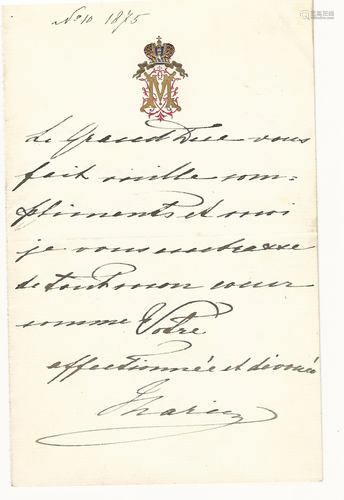 No 10 1875
M
Le Grand Duc vous
fait mille com=
pliments et moi
je vous embrasse
de tout mon coeur
comme Votre
affectionnée et dévouée